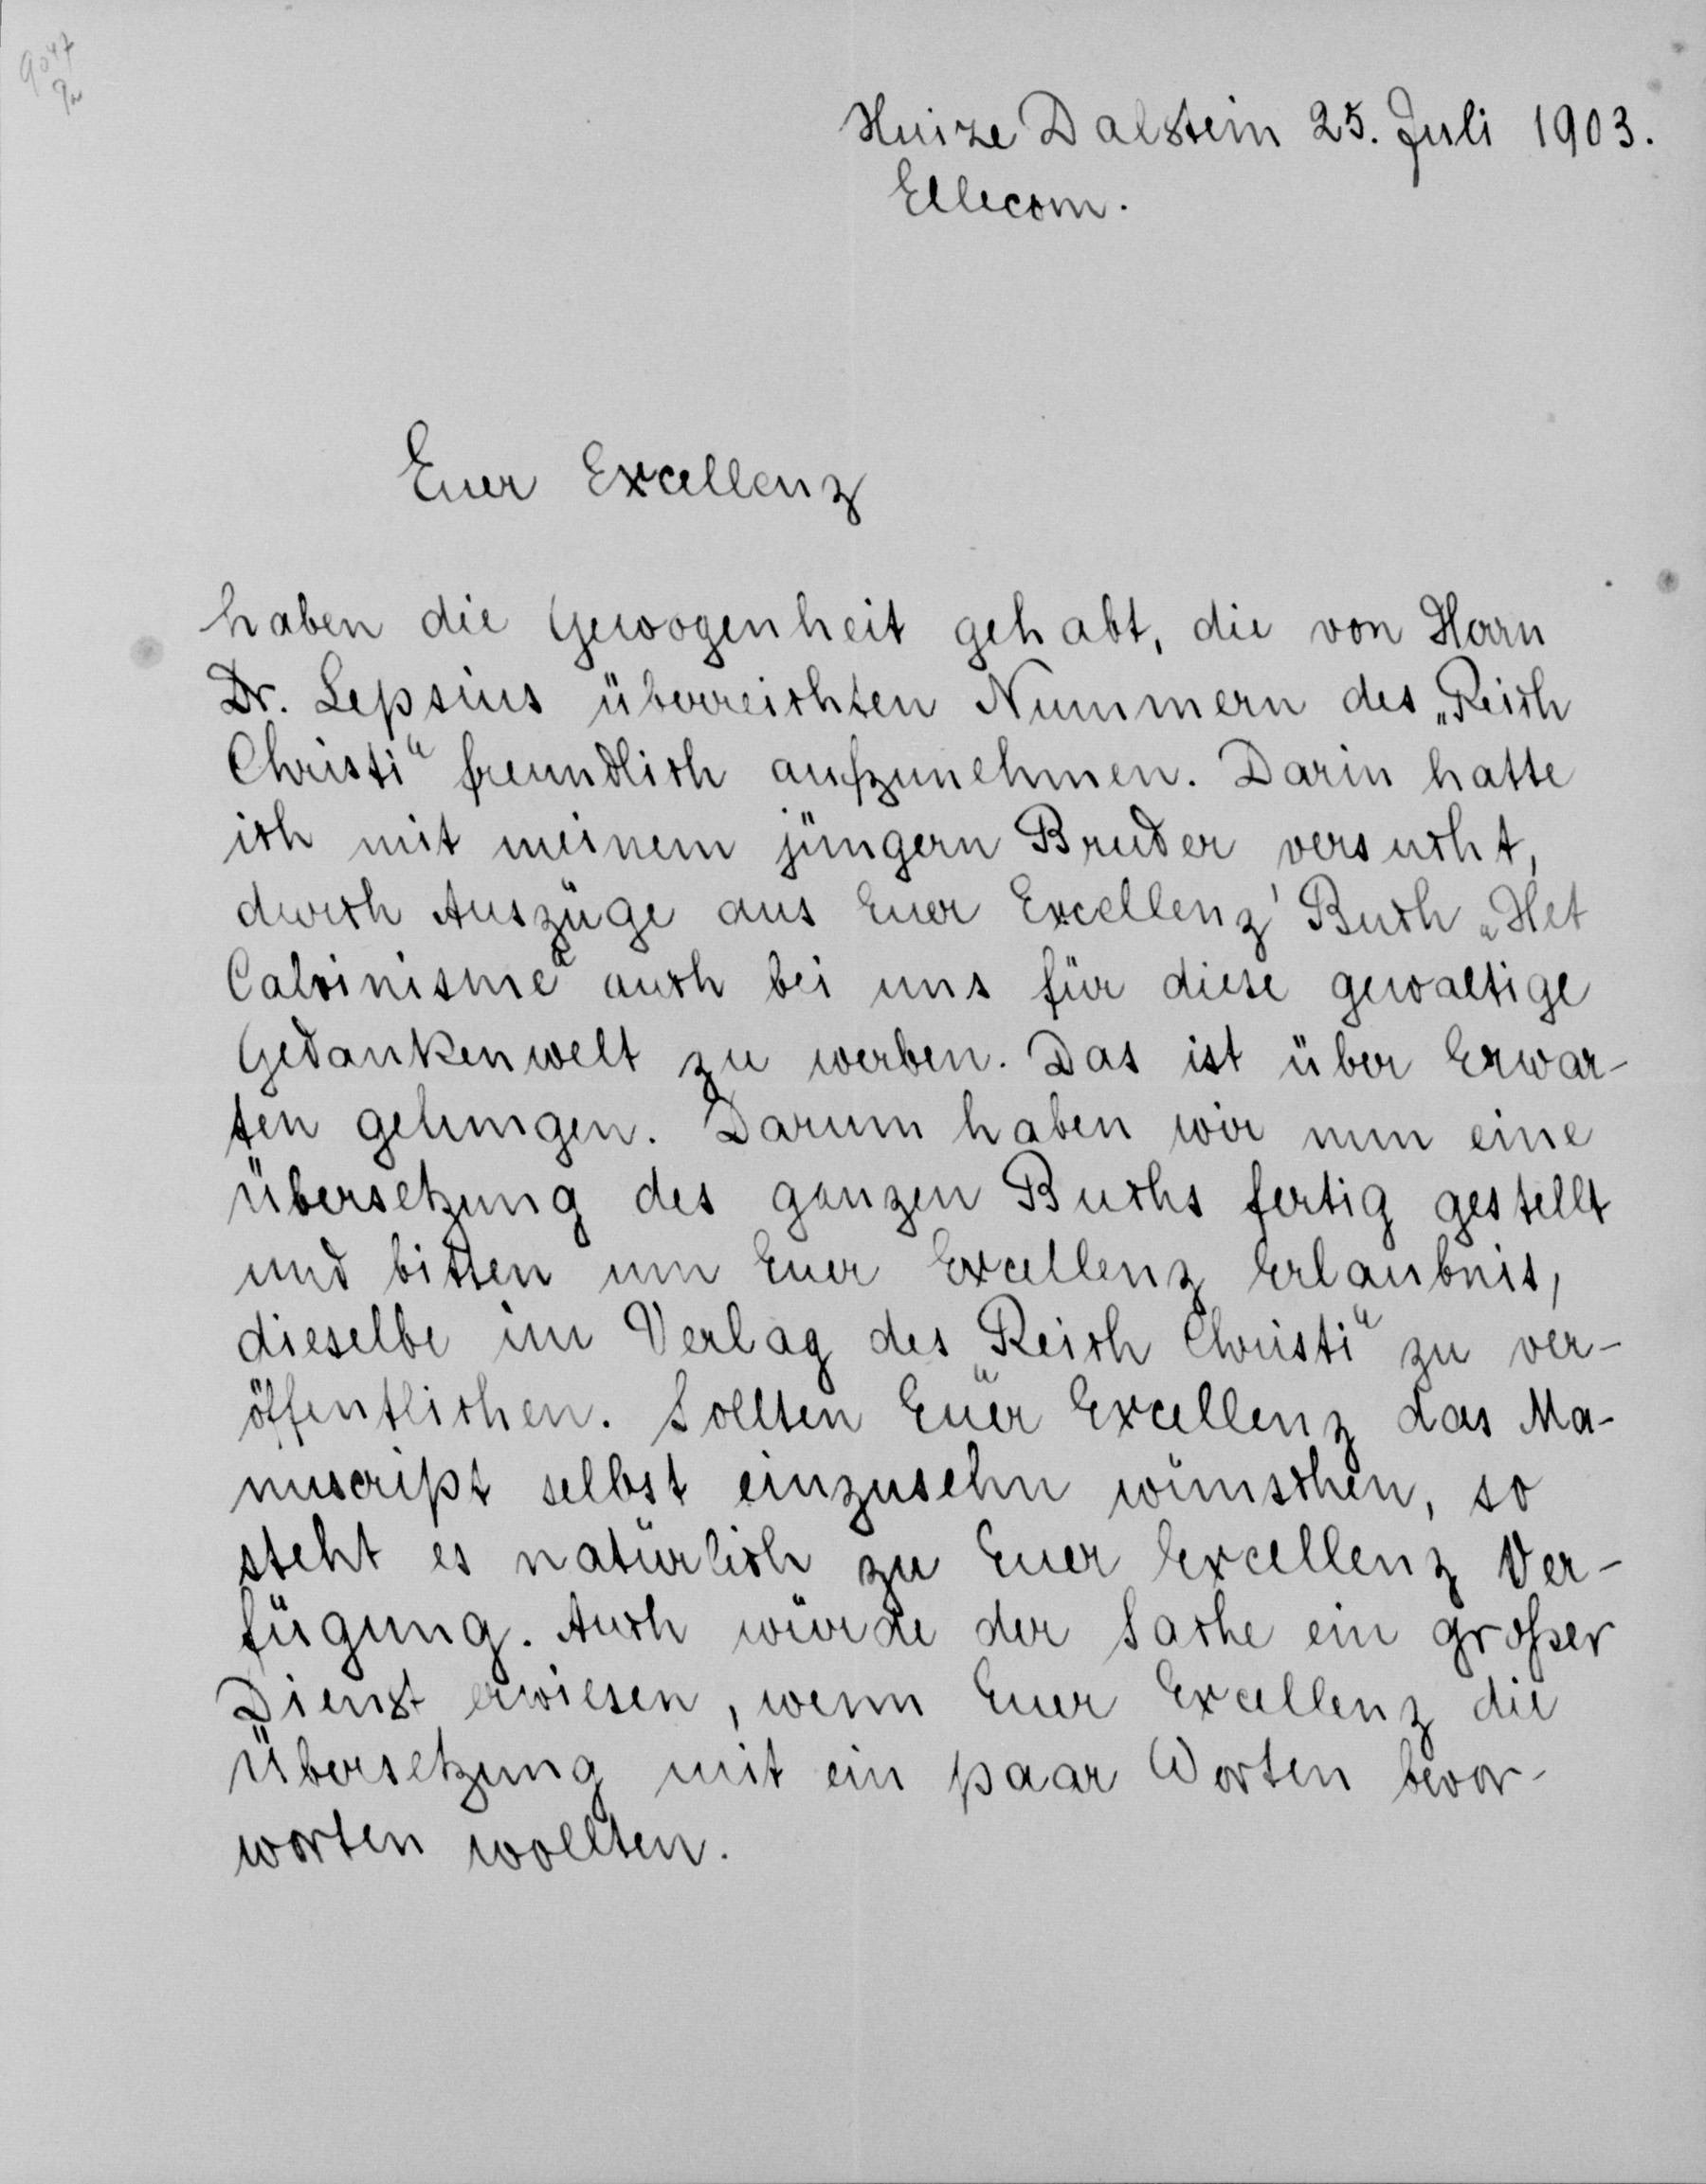 9047
Huize Dalstein 25. Juli 1903.
Ellecom.
Euer Excellenz
haben die Gewogenheit gehabt, die von Herrn
Dr. Lepsius überreichten Nummern des „Reich
Christi“ freundlich aufzunehmen. Darin hatte
ich mit meinem jüngern Bruder versucht,
durch Auszüge aus Euer Excellenz' Buch „Het
Calvinisme“ auch bei uns für diese gewaltige
Gedankenwelt zu werben. Das ist über Erwar-
ten gelungen. Darum haben wir nun eine
Übersetzung des ganzen Buchs fertig gestellt
und bitten um Euer Excellenz Erlaubnis,
dieselbe im Verlag des „Reich Christi“ zu ver-
öffentlichen. Sollten Euer Excellenz das Ma-
nuscript selbst einzusehn wünschen, so
steht es natürlich zu Euer Excellenz Ver-
fügung. Auch würde der Sache ein großer
Dienst erwiesen, wenn Euer Excellenz die
Übersetzung mit ein paar Worten bevor-
worten wollten.